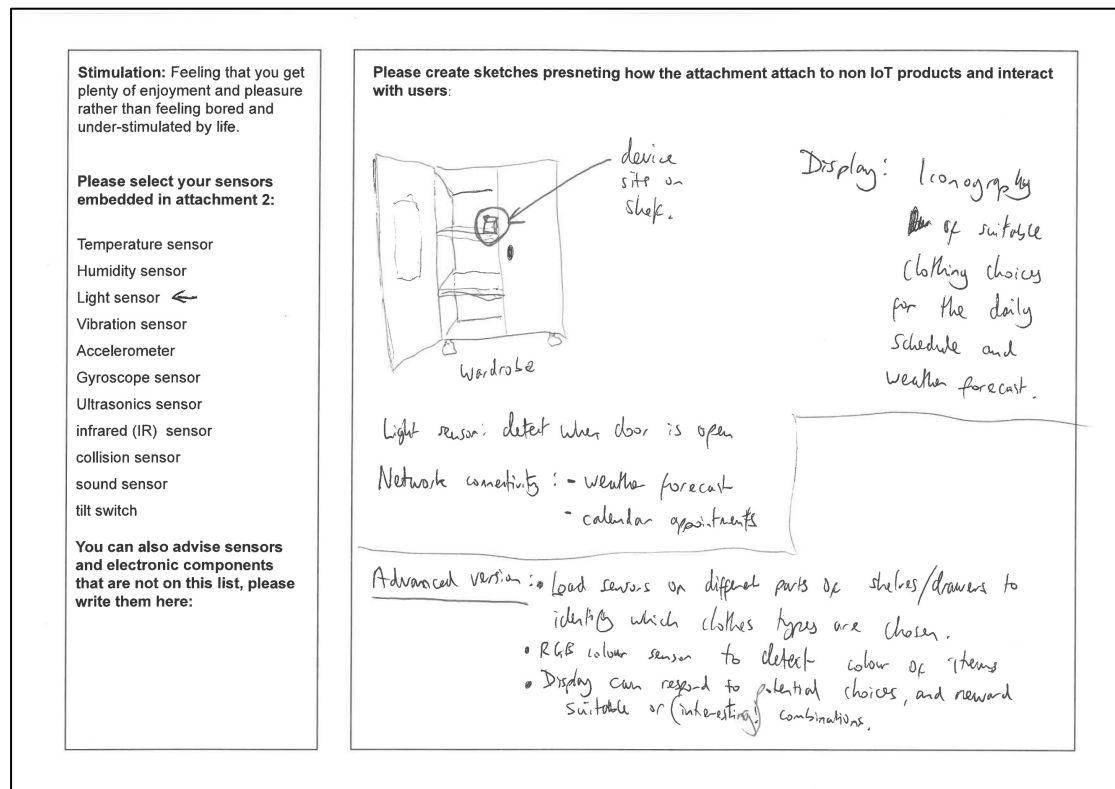 Stimulation: Feeling that you get
plenty of enjoyment and pleasure
rather than feeling bored and
under-stimulated by life.
Please select your sensors
embedded in attachment 2:
Temperature sensor
Humidity sensor
Light sensor ←
Vibration sensor
Accelerometer
Gyroscope sensor
Ultrasonics sensor
infrared (IR) sensor
collision sensor
sound sensor
tilt switch
You can also advise sensors
and electronic components
that are not on this list, please
write them here:
Please create sketches presneting how the attachment attach to non IoT products and interact
with users:
device
sits on
shelf.
wardrobe
Display: Iconography
of suitable
clothing choices
for the daily
schedule and
weather forecast.
Light sensor: detect when door is open
Network connectivity: - weather forecast
- calendar appointments
Advanced version: • Load sensors on different parts of shelves/drawers to
identify which clothes types are chosen.
• RGB colour sensor to detect colour of items
• Display can respond to potential choices, and reward
suitable or (interesting!) combinations.